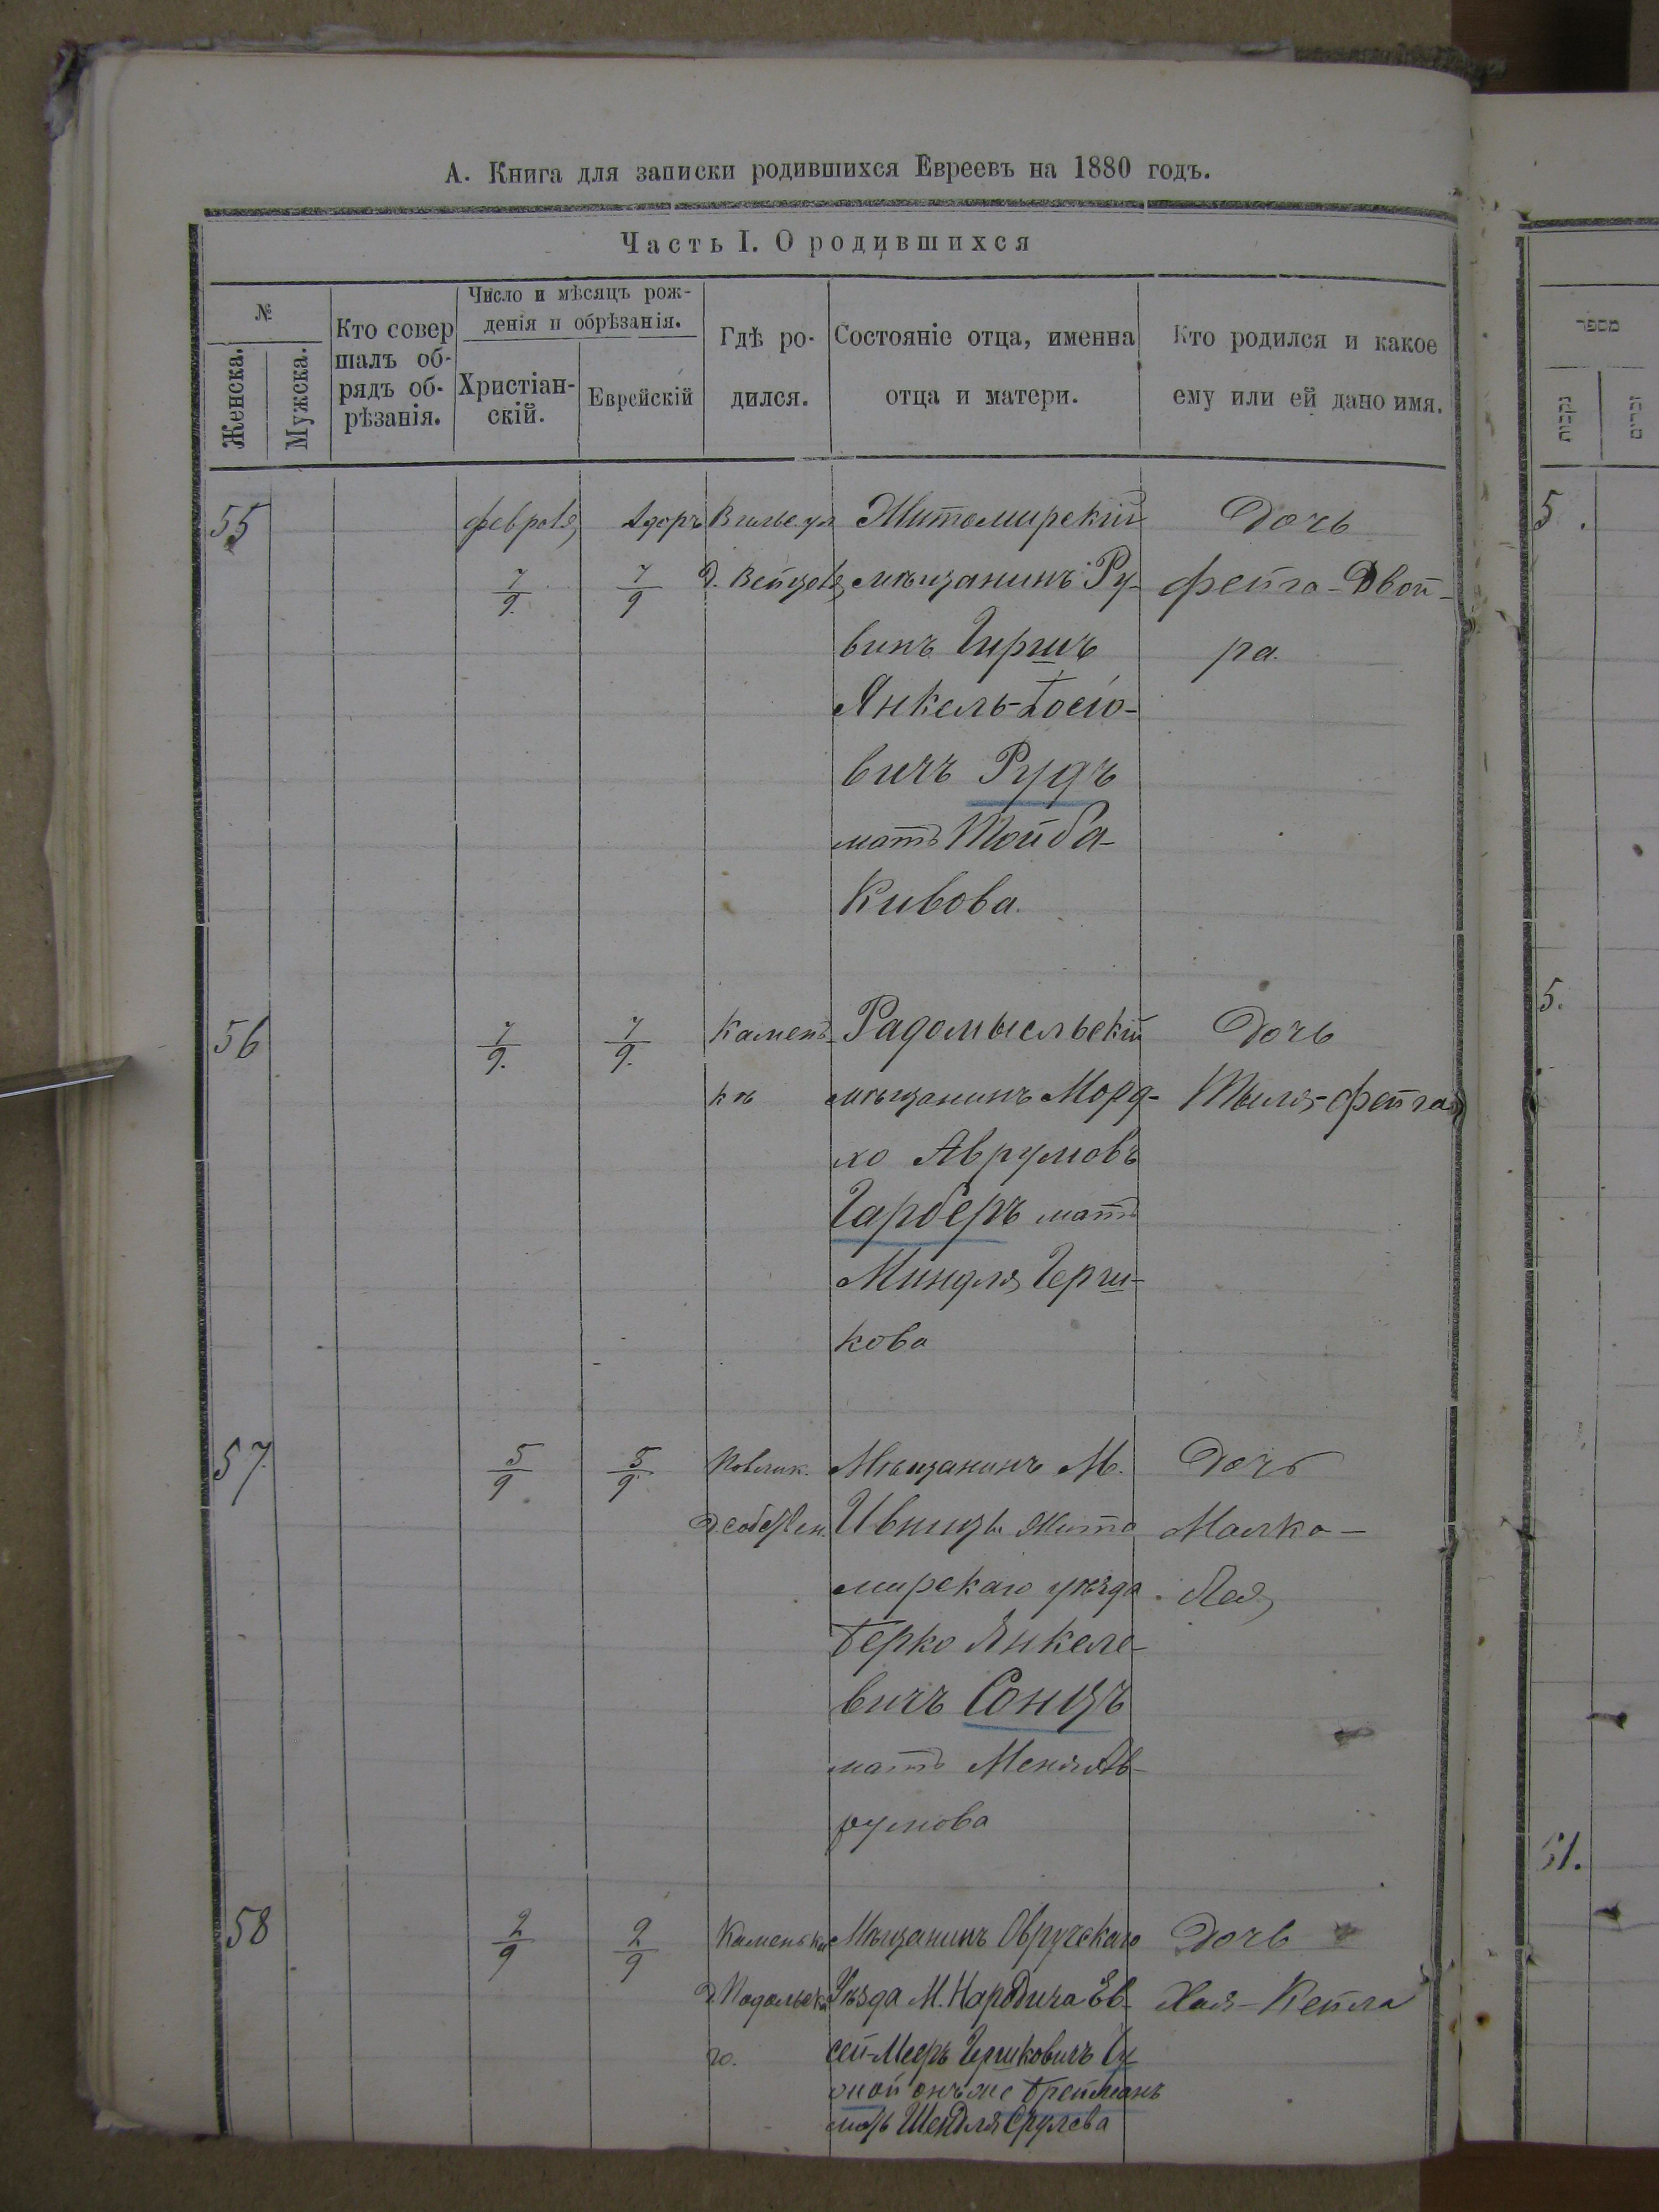 А. Книга для записки родившихся Евреевъ на 1880 годъ.
Часть I. О родившихся
№
Женска.
Мужска.
Кто совер
шалъ об-
рядъ об-
рѣзанія.
Число и мѣсяцъ рож-
денія и обрѣзанія.
Христіан-
скій.
Еврейскій
Гдѣ ро-
дился.
Состояніе отца, именна
отца и матери.
Кто родился и какое
ему или ей дано имя.
55
февраля
7/9.
Адаръ
7/9
Д.
Житомирскій
мѣщанинъ Ру-
винъ Гиршъ
Янкель-Iосіо-
вичъ Рудъ
мать Тойба-
Кивова.
Дочь
Фейга-Двой-
ра.
56
7/9.
7/9.
Камень-
кѣ
Радомысльскій
мѣщанинъ Морд-
хо Аврумовъ
Гарберъ мать
Миндля Герш-
кова
Дочь
Тыля-Фейга
57
5/9
5/9.
Павлик.
д. собствен.
Мѣщанинъ М.
Ивницы Жито
мирскаго уѣзда
Берко Янкеле-
вичъ Сонцъ
мать Меня Ав-
румова
Дочь
Малка-
Лея
58
2/9
2/9
Каменьки
д. Подольска
го.
Мѣщанинъ Овручскаго
Уѣзда М. Народича Ев-
сей-Мееръ Гершковичъ
онъ же Трейманъ
мать Шендля Срулева
Дочь
Хая-Кейла
מספר
נקבות
זכרים
5.
5.
51.